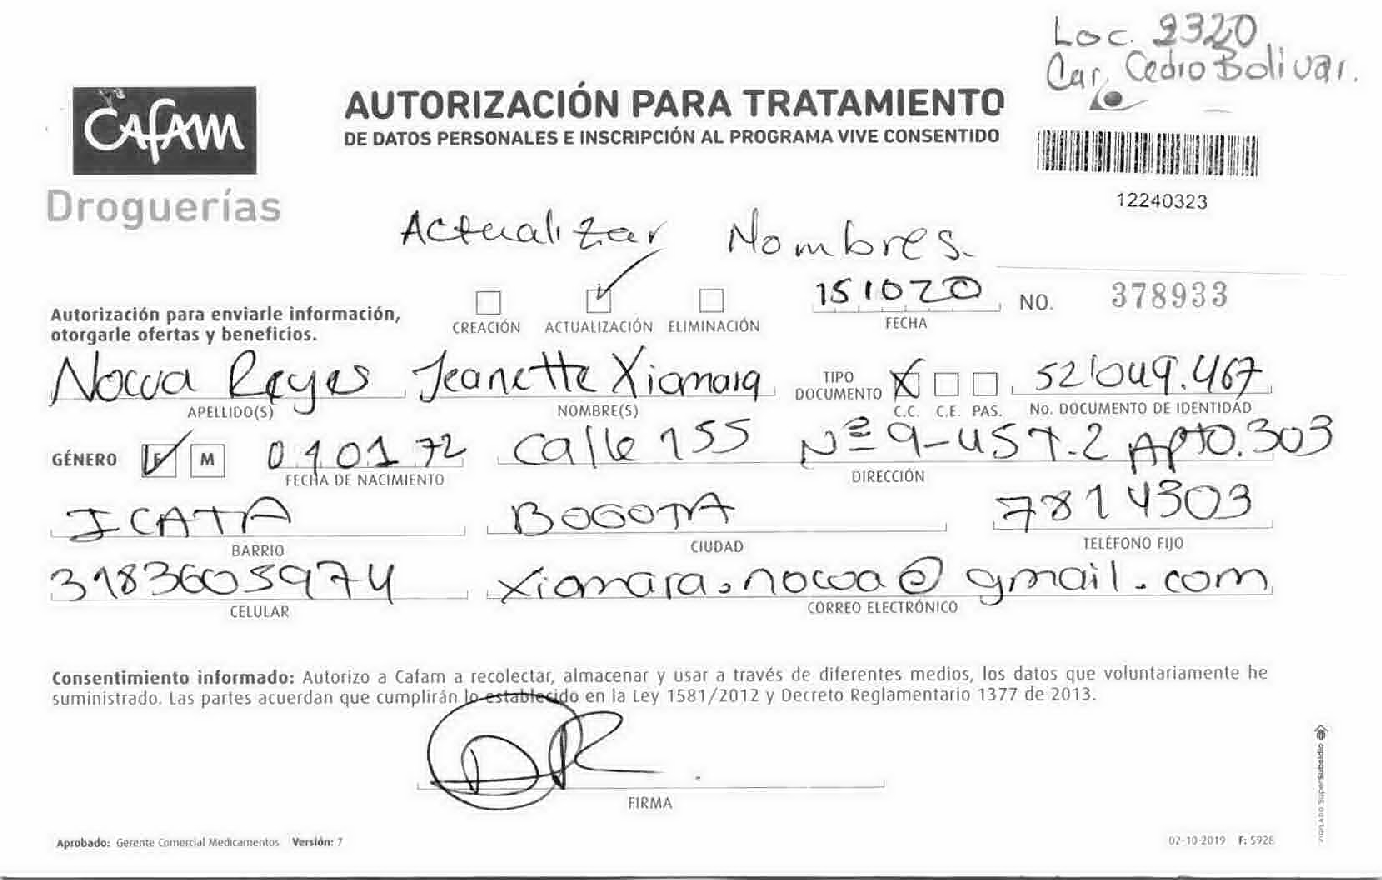 Loc. 2320
Car. Cedro Bolivar.
Cafam
Droguerías
AUTORIZACIÓN PARA TRATAMIENTO
DE DATOS PERSONALES E INSCRIPCIÓN AL PROGRAMA VIVE CONSENTIDO
12240323
Actualizar Nombres.
Autorización para enviarle información,
otorgarle ofertas y beneficios.
CREACIÓN ACTUALIZACIÓN ELIMINACIÓN
151020
FECHA
NO. 378933
Nova Reyes Jeanette Xiomara
APELLIDO(S) NOMBRE(S)
TIPO
DOCUMENTO X 52'049.467
C.C. C.E. PAS. No. DOCUMENTO DE IDENTIDAD
GÉNERO F M 010172 Calle 155 Nº 9-45 T.2 APTO.303
FECHA DE NACIMIENTO DIRECCIÓN
ICATA BOGOTA 7814303
BARRIO CIUDAD TELÉFONO FIJO
3183605974 xiomara.novoa@gmail.com
CELULAR CORREO ELECTRÓNICO
Consentimiento informado: Autorizo a Cafam a recolectar, almacenar y usar a través de diferentes medios, los datos que voluntariamente he
suministrado. Las partes acuerdan que cumplirán lo establecido en la Ley 1581/2012 y Decreto Reglamentario 1377 de 2013.
FIRMA
Aprobado: Gerente Comercial Medicamentos Versión: 7
02-10-2019 F: 5928